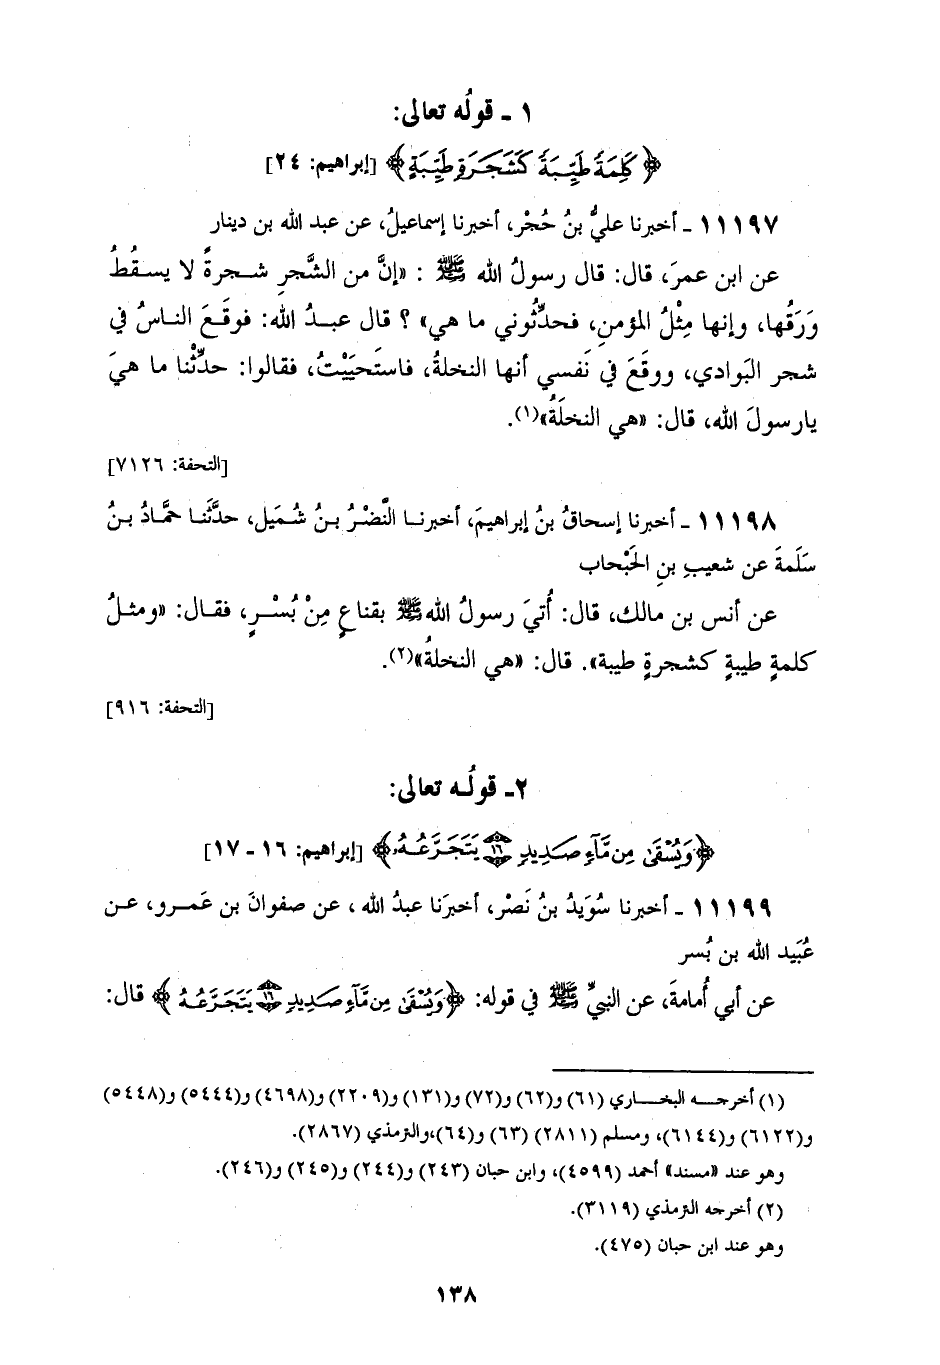 ١ - قولُه تعالى:
﴿كَلِمَةً طَيِّبَةً كَشَجَرَةٍ طَيِّبَةٍ﴾ [إبراهيم: ٢٤]
١١١٩٧ - أخبرنا عليُّ بنُ حُجْر، أخبرنا إسماعيلُ، عن عبد الله بن دينار
عن ابن عمرَ، قال: قال رسولُ الله ﷺ : «إنَّ من الشَّجرِ شجرةً لا يسقُطُ
وَرَقُها، وإنها مِثْلُ المؤمنِ، فحدِّثُوني ما هي» ؟ قال عبدُ الله: فوقَعَ الناسُ في
شجر البَوادي، ووقَعَ في نَفسي أنها النخلةُ، فاستَحيَيْتُ، فقالوا: حدِّثْنا ما هيَ
يارسولَ الله، قال: «هي النخلَةُ»(١).
[التحفة: ٧١٢٦]
١١١٩٨ - أخبرنا إسحاقُ بنُ إبراهيمَ، أخبرنا النَّضْرُ بنُ شُمَيل، حدَّثَنا حمَّادُ بنُ
سَلَمةَ عن شعيبِ بنِ الحَبْحاب
عن أنس بن مالك، قال: أُتيَ رسولُ الله ﷺ بقناعٍ مِنْ بُسْرٍ، فقال: «ومثلُ
كلمةٍ طيبةٍ كشجرةٍ طيبة». قال: «هي النخلةُ»(٢).
[التحفة: ٩١٦]
٢- قولُه تعالى:
﴿وَيُسْقَىٰ مِن مَّآءٍ صَدِيدٍ ١٦ يَتَجَرَّعُهُۥ﴾ [إبراهيم: ١٦ - ١٧]
١١١٩٩ - أخبرنا سُوَيدُ بنُ نَصْر، أخبرَنا عبدُ الله ، عن صفوانَ بن عَمرو، عن
عُبَيد الله بن بُسر
عن أبي أُمامةَ، عن النبيِّ ﷺ في قوله: ﴿وَيُسْقَىٰ مِن مَّآءٍ صَدِيدٍ ١٦ يَتَجَرَّعُهُ﴾ قال:
(١) أخرجه البخاري (٦١) و(٦٢) و(٧٢) و(١٣١) و(٢٢٠٩) و(٤٦٩٨) و(٥٤٤٤) و(٥٤٤٨)
و(٦١٢٢) و(٦١٤٤)، ومسلم (٢٨١١) (٦٣) و(٦٤)،والترمذي (٢٨٦٧).
وهو عند «مسند» أحمد (٤٥٩٩)، وابن حبان (٢٤٣) و(٢٤٤) و(٢٤٥) و(٢٤٦).
(٢) أخرجه الترمذي (٣١١٩).
وهو عند ابن حبان (٤٧٥).
١٣٨